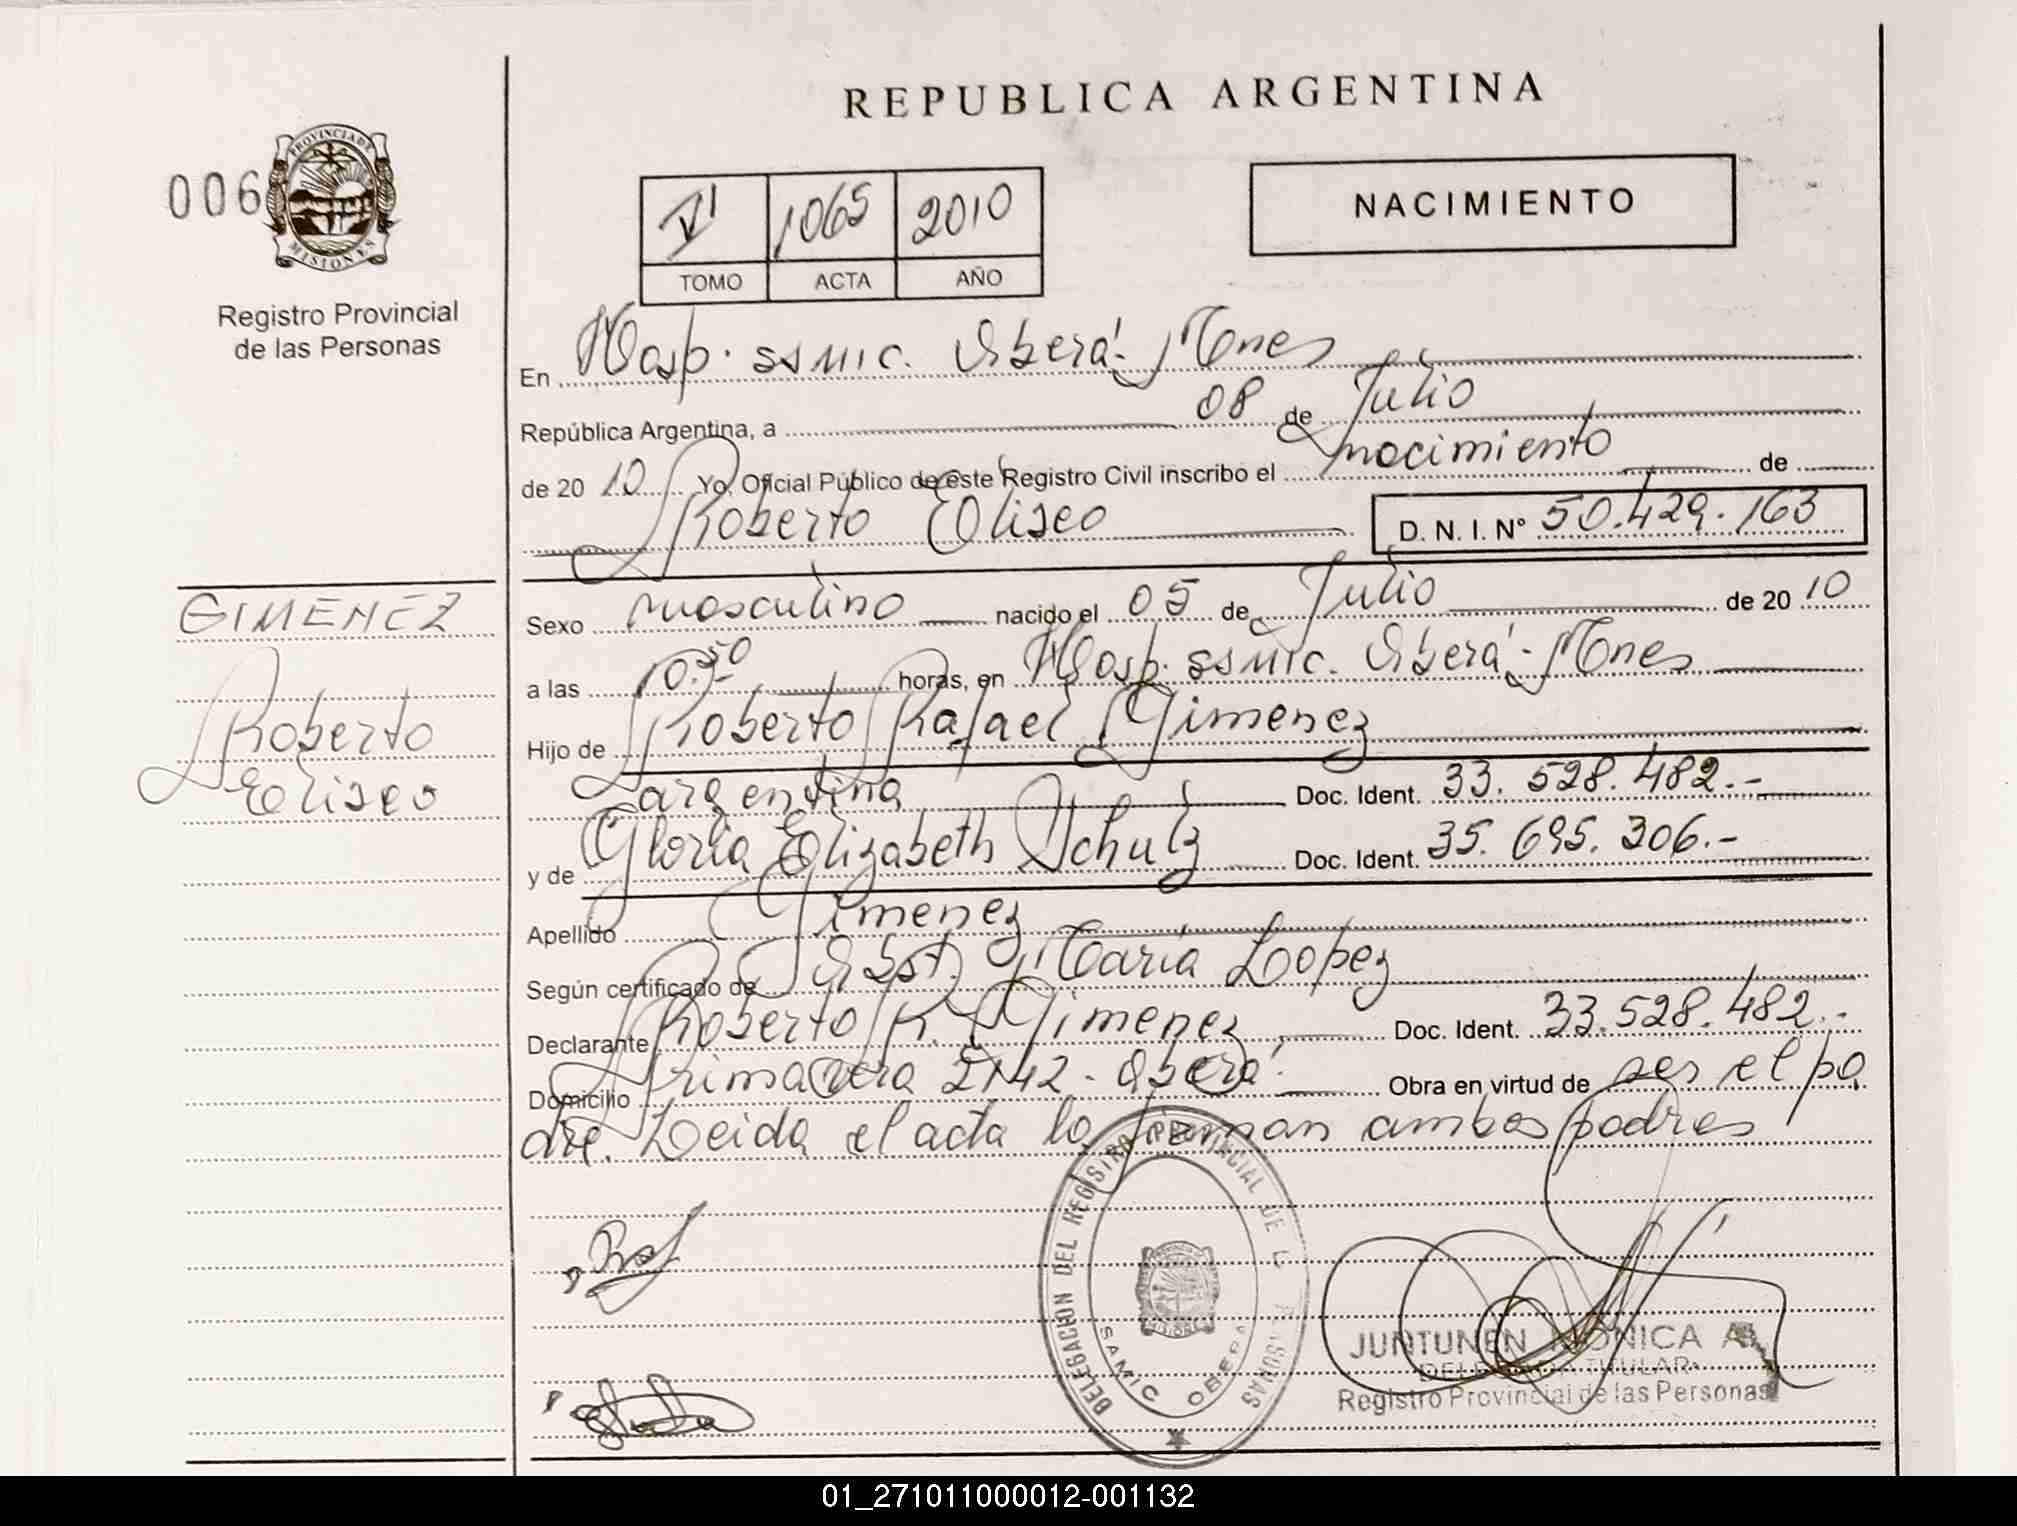 REPUBLICA ARGENTINA
006
PROVINCIA DE
MISIONES
Registro Provincial
de las Personas
VI 1065 2010
TOMO ACTA AÑO
NACIMIENTO
En Hosp. SSMIC. Oberá - Mnes
República Argentina, a 08 de Julio
de 2010 Yo, Oficial Público de este Registro Civil inscribo el nacimiento de
Roberto Eliseo D. N. I. Nº 50.429.163
GIMENEZ
Roberto
Eliseo
Sexo masculino nacido el 05 de Julio de 2010
a las 10.50 horas, en Hosp. SSMIC. Oberá - Mnes
Hijo de Roberto Rafael Gimenez
argentina Doc. Ident. 33.528.482.-
y de Gloria Elizabeth Schulz Doc. Ident. 35.695.306.-
Apellido Gimenez
Según certificado de Obst. María Lopez
Declarante Roberto R. Gimenez Doc. Ident. 33.528.482.-
Domicilio Primavera 2142 - Oberá Obra en virtud de ser el pa
dre. Leida el acta la firman ambos padres
DELEGACION DEL REGISTRO PROVINCIAL DE L PERSONAS
SAMIC OBERA
JUNTUNEN MONICA A.
DELEGADA TITULAR
Registro Provincial de las Personas
01_271011000012-001132